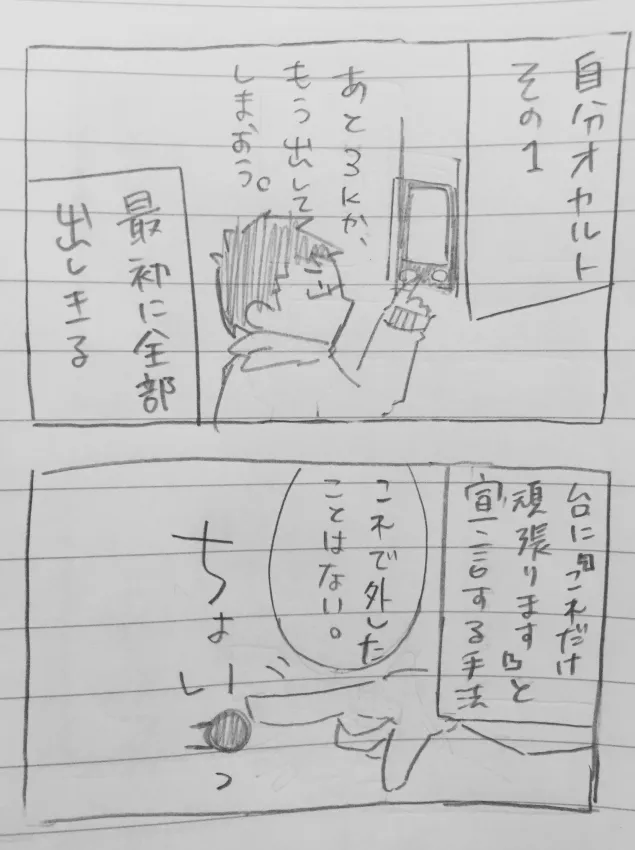 自分オカルト
その1
あと3Kか、
もう出して
しまおう。
最初に全部
出しきる
台に『これだけ
頑張ります』と
宣言する手法
これで外した
ことはない。
ちょいっ